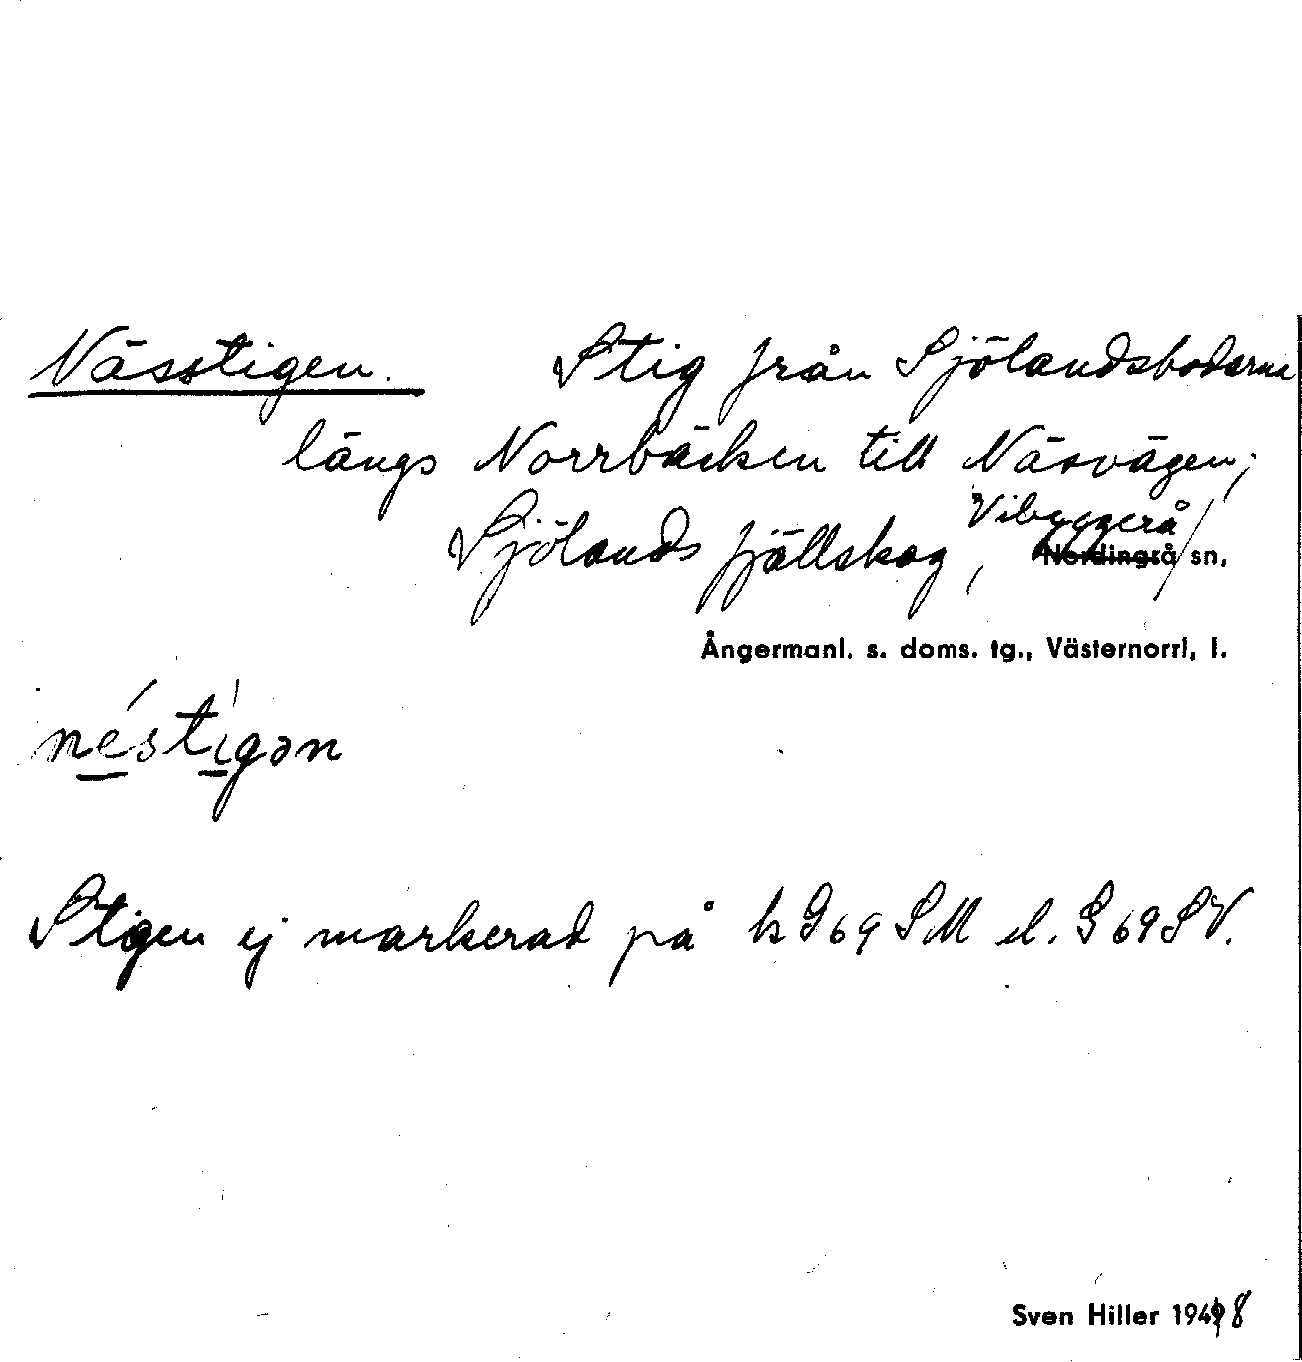 Nässtigen. Stig från Sjölandsbodarna
längs Norrbäcken till Näsvägen;
Sjölands fjällskog, Vibyggerå
Nordingrå sn,
Ångermanl. s. doms. tg., Västernorrl. l.
néstígən
Stigen ej markerad på k G69SM el. G69SV.
Sven Hiller 1948